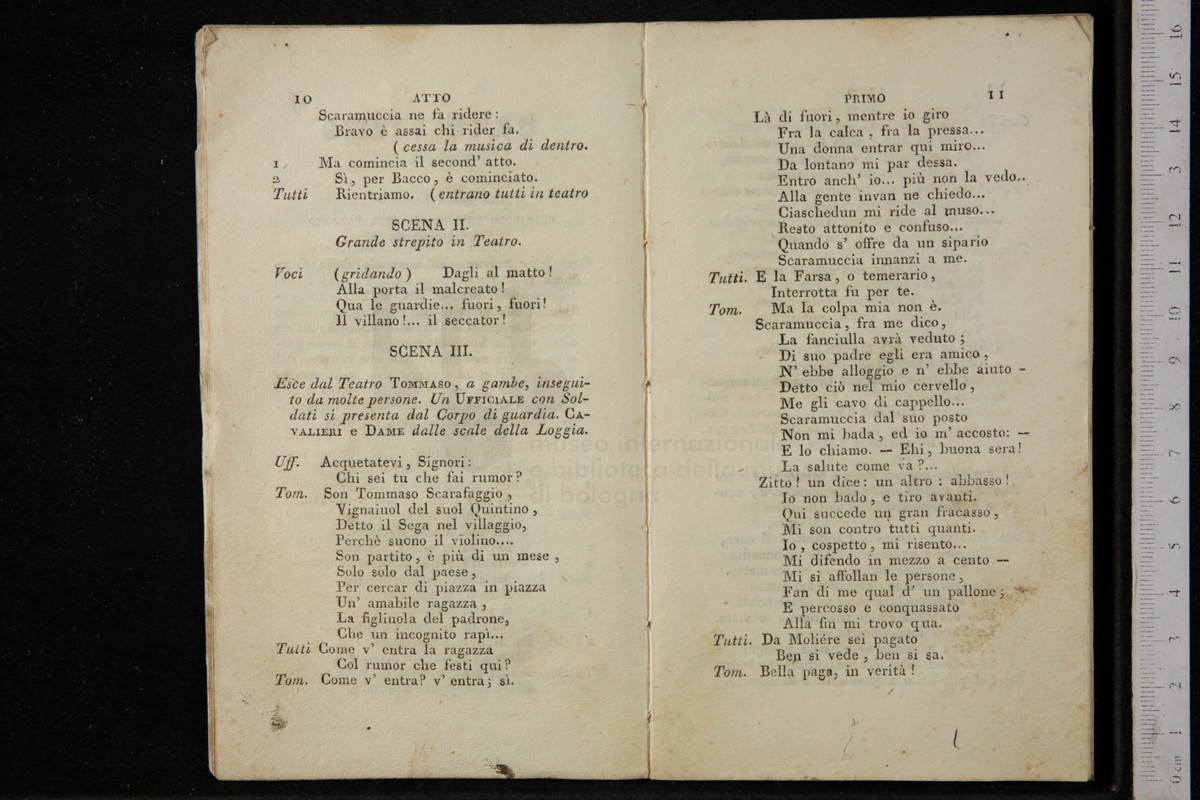 10 ATTO
Scaramuccia ne fa ridere :
Bravo è assai chi rider fa.
( cessa la musica di dentro.
1 Ma comincia il second' atto.
2 Sì, per Bacco, è cominciato.
Tutti Rientriamo. ( entrano tutti in teatro
SCENA II.
Grande strepito in Teatro.
Voci (gridando ) Dagli al matto !
Alla porta il malcreato !
Qua le guardie... fuori, fuori!
Il villano !... il seccator !
SCENA III.
Esce dal Teatro TOMMASO, a gambe, insegui-
to da molte persone. Un UFFICIALE con Sol-
dati si presenta dal Corpo di guardia. CA-
VALIERI e DAME dalle scale della Loggia.
Uff. Acquetatevi, Signori :
Chi sei tu che fai rumor ?
Tom. Son Tommaso Scarafaggio ,
Vignaiuol del suol Quintino ,
Detto il Sega nel villaggio,
Perchè suono il violino....
Son partito, è più di un mese ,
Solo solo dal paese,
Per cercar di piazza in piazza
Un' amabile ragazza ,
La figliuola del padrone,
Che un incognito rapì...
Tutti Come v' entra la ragazza
Col rumor che festi qui?
Tom. Come v' entra? v' entra; sì.
PRIMO 11
Là di fuori, mentre io giro
Fra la calca , fra la pressa...
Una donna entrar qui miro...
Da lontano mi par dessa.
Entro anch' io... più non la vedo..
Alla gente invan ne chiedo...
Ciaschedun mi ride al muso...
Resto attonito e confuso...
Quando s' offre da un sipario
Scaramuccia innanzi a me.
Tutti. E la Farsa, o temerario,
Interrotta fu per te.
Tom. Ma la colpa mia non è.
Scaramuccia, fra me dico,
La fanciulla avrà veduto ;
Di suo padre egli era amico ,
N' ebbe alloggio e n' ebbe aiuto -
Detto ciò nel mio cervello ,
Me gli cavo di cappello...
Scaramuccia dal suo posto
Non mi bada, ed io m' accosto: —
E lo chiamo. — Ehi, buona sera!
La salute come va ?...
Zitto ! un dice: un altro : abbasso !
Io non bado , e tiro avanti.
Qui succede un gran fracasso ,
Mi son contro tutti quanti.
Io , cospetto , mi risento...
Mi difendo in mezzo a cento —
Mi si affollan le persone ,
Fan di me qual d' un pallone ;
E percosso e conquassato
Alla fin mi trovo qua.
Tutti. Da Moliére sei pagato
Ben si vede , ben si sa.
Tom. Bella paga, in verità !
museo internazionale
e biblioteca della
di bologna